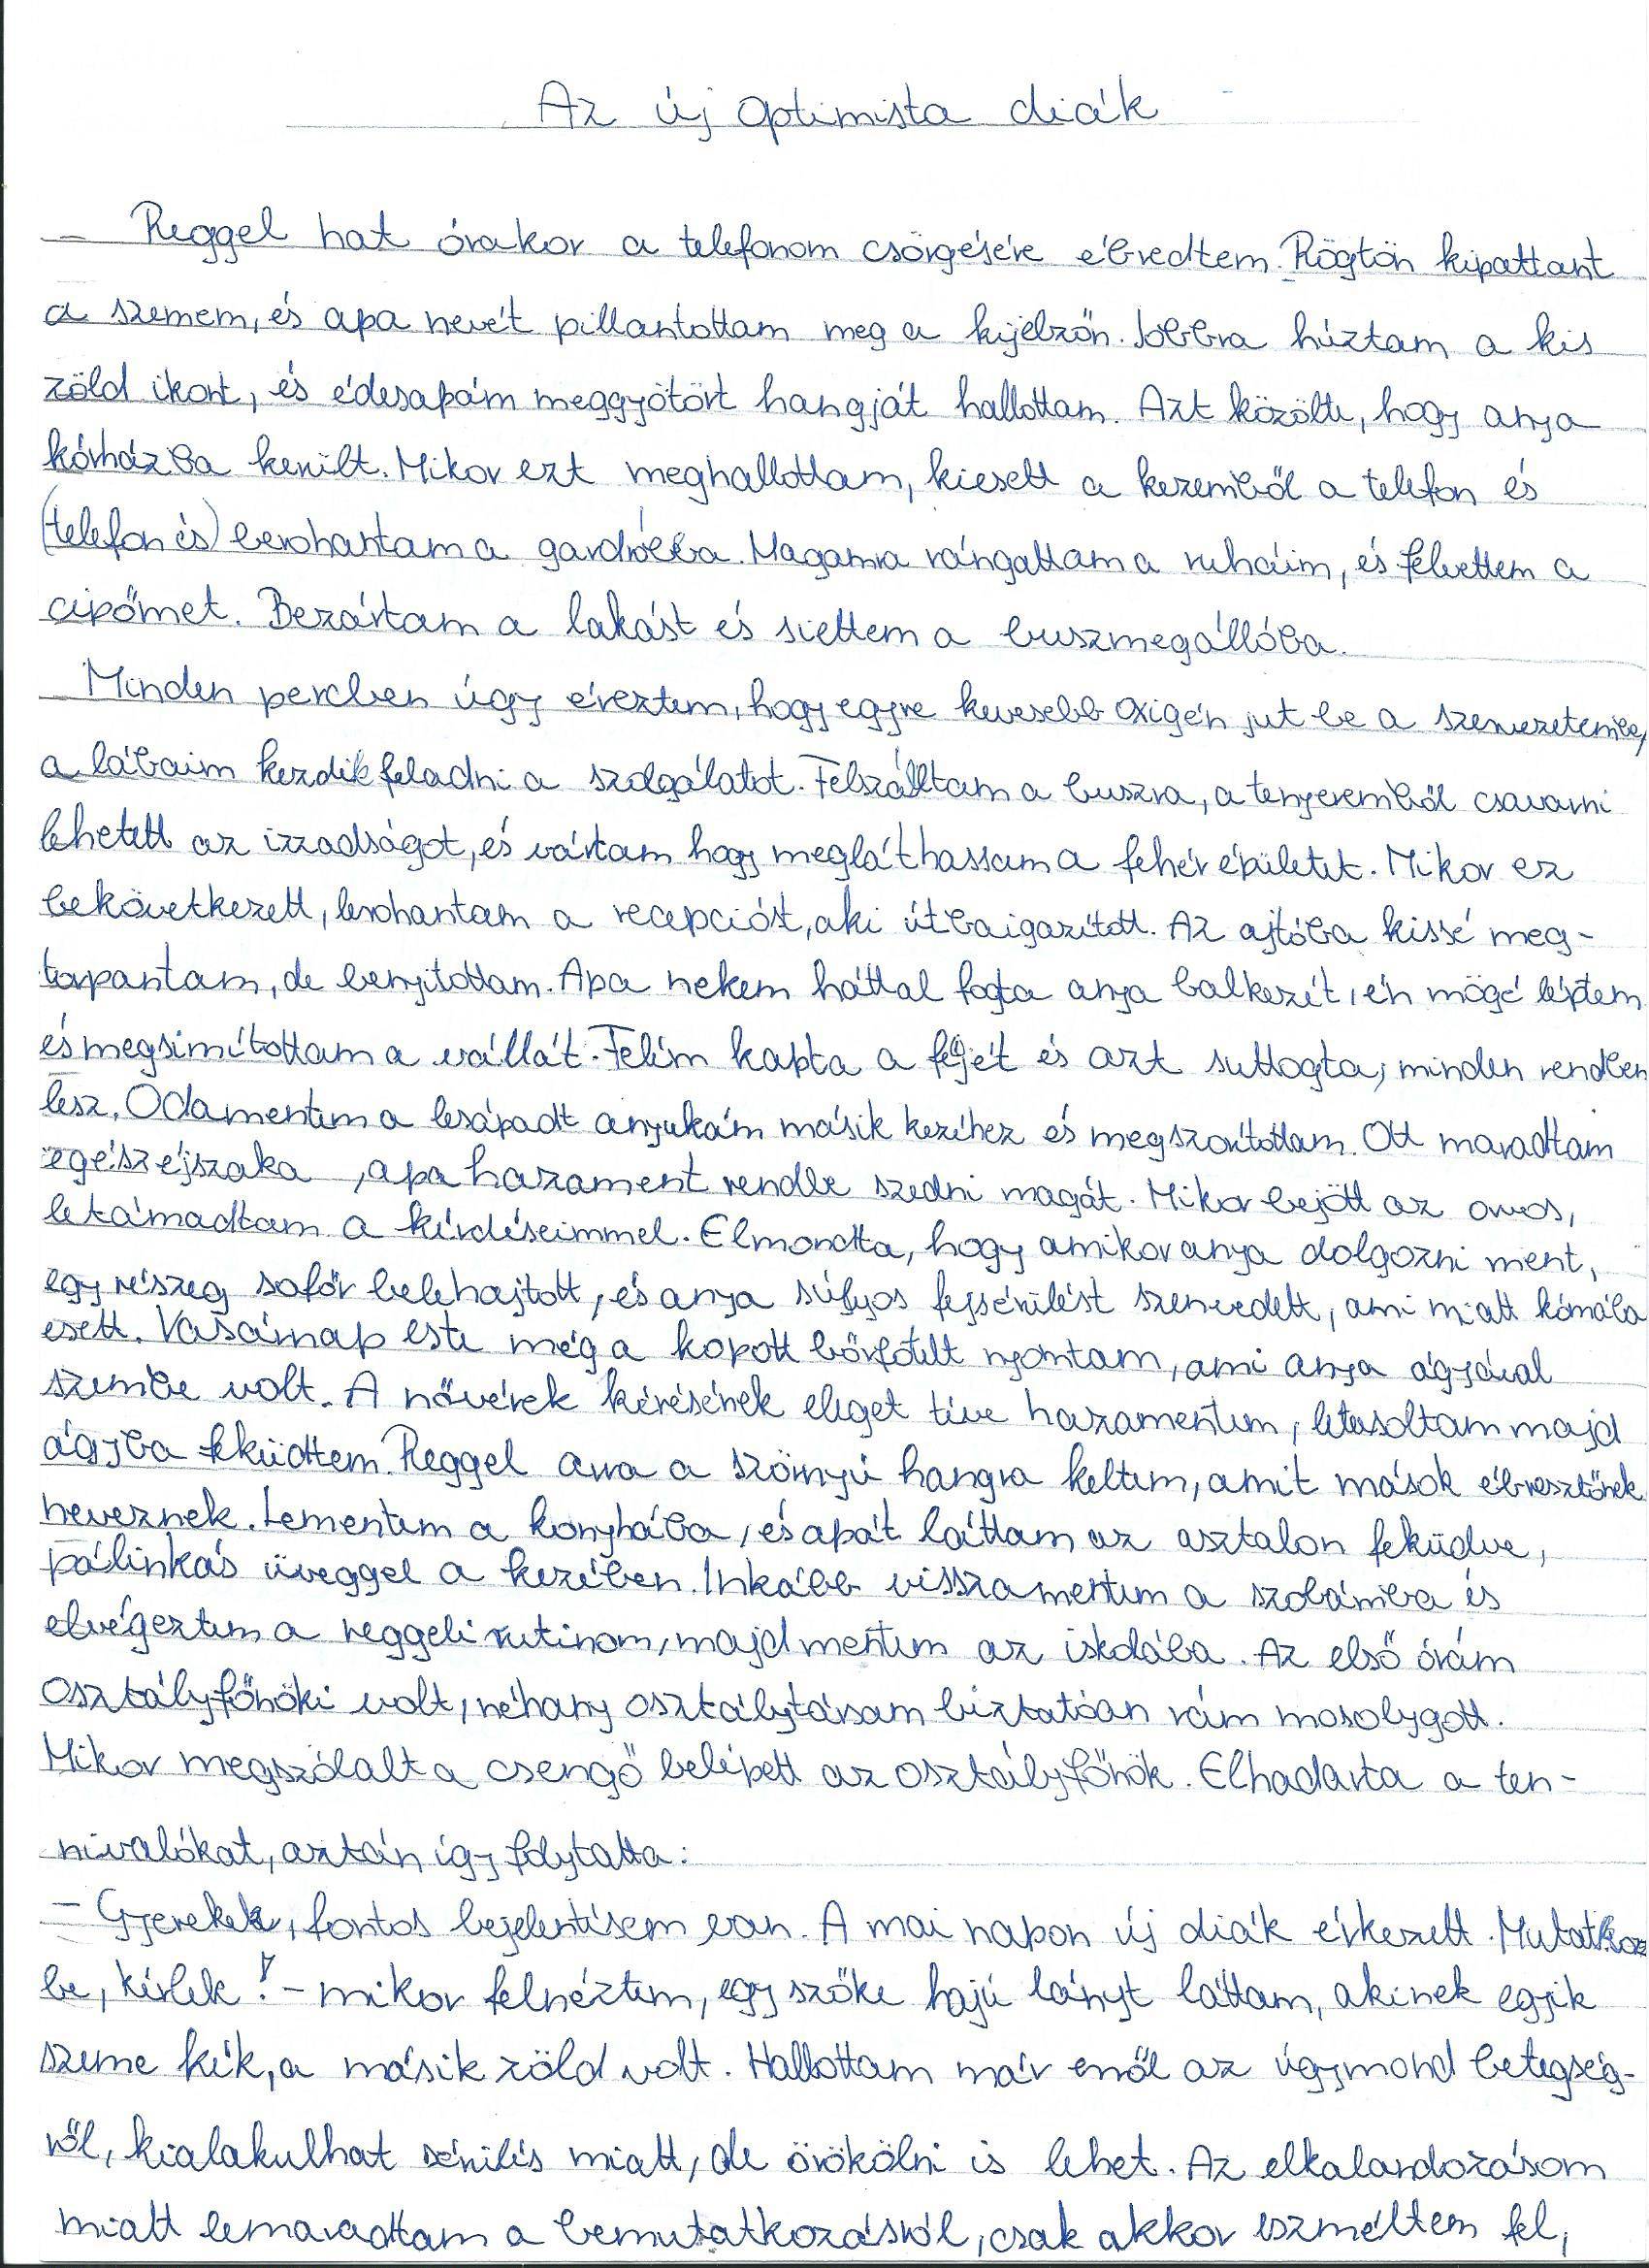 Az új optimista diák
Reggel hat órakor a telefonom csörgésére ébredtem. Rögtön kipattant
a szemem, és apa nevét pillantottam meg a kijelzőn. Jobbra húztam a kis
zöld ikont, és édesapám meggyötört hangját hallottam. Azt közölte, hogy anya
kórházba került. Mikor ezt meghallottam, kiesett a kezemből a telefon és
(telefon és) berohantam a gardróbba. Magamra rángattam a ruháim, és felvettem a
cipőmet. Bezártam a lakást és siettem a buszmegállóba.
Minden percben úgy éreztem, hogy egyre kevesebb oxigén jut be a szervezetembe,
a lábaim kezdik feladni a szolgálatot. Felszálltam a buszra, a tenyeremből csavarni
lehetett az izzadságot, és vártam hogy megláthassam a fehér épületet. Mikor ez
bekövetkezett, lerohantam a recepcióst, aki útbaigazított. Az ajtóba kissé meg-
torpantam, de benyitottam. Apa nekem háttal fogta anya balkezét, én mögé léptem
és megsimítottam a vállát. Felém kapta a fejét és azt suttogta, minden rendben
lesz. Odamentem a lesápadt anyukám másik kezéhez és megszorítottam. Ott maradtam
egész éjszaka, apa hazament rendbe szedni magát. Mikor bejött az orvos,
letámadtam a kérdéseimmel. Elmondta, hogy amikor anya dolgozni ment,
egy részeg sofőr belehajtott, és anya súlyos fejsérülést szenvedett, ami miatt kómába
esett. Vasárnap este még a kopott bőrfotelt nyomtam, ami anya ágyával
szembe volt. A nővérek kérésének eleget téve hazamentem, letusoltam majd
ágyba feküdtem. Reggel arra a szörnyű hangra keltem, amit mások ébresztőnek
neveznek. Lementem a konyhába, és apát láttam az asztalon feküdve,
pálinkás üveggel a kezében. Inkább visszamentem a szobámba és
elvégeztem a reggeli rutinom, majd mentem az iskolába. Az első órám
osztályfőnöki volt, néhány osztálytársam biztatóan rám mosolygott.
Mikor megszólalt a csengő belépett az osztályfőnök. Elhadarta a ten-
nivalókat, aztán így folytatta:
- Gyerekek, fontos bejelentésem van. A mai napon új diák érkezett. Mutatkozz
be, kérlek! - mikor felnéztem, egy szőke hajú lányt láttam, akinek egyik
szeme kék, a másik zöld volt. Hallottam már erről az úgymond betegség-
ről, kialakulhat sérülés miatt, de örökölni is lehet. Az elkalandozásom
miatt lemaradtam a bemutatkozásról, csak akkor eszméltem fel,